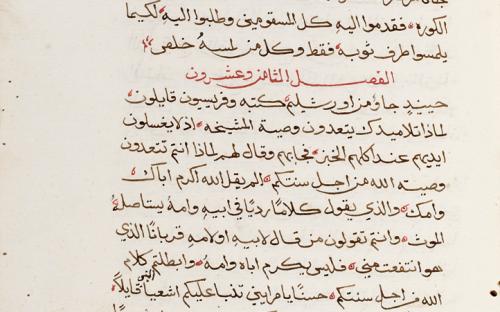 الكوره فقدموا اليه كل المسقومين وطلبوا اليه لكيما
يلمسوا طرف ثوبه فقط وكل من لمسه خلص
الفصل الثامن وعشرون
حينيد جاو من اورشليم كتبه وفريسيون قايلون
لماذا تلاميدك يتعدون وصية المشيخه اذ لا يغسلون
ايديهم عند اكلهم الخبز فجابهم وقال لهم لماذا انتم تتعدون
وصيته الله من اجل سنتكم الم يقل الله اكرم اباك
وامك والذي يقول كلاما رديا في ابيه وامه يستاصله
الموت وانتم تقولون من قال لابيه او لامه قربانا الذي
هو انتفعت مني فليس يكرم اباه وامه وابطلتم كلام
الله من اجل سنتكم حسنا يا مرايين تنبا عليكم اشعيا النبي قايلا